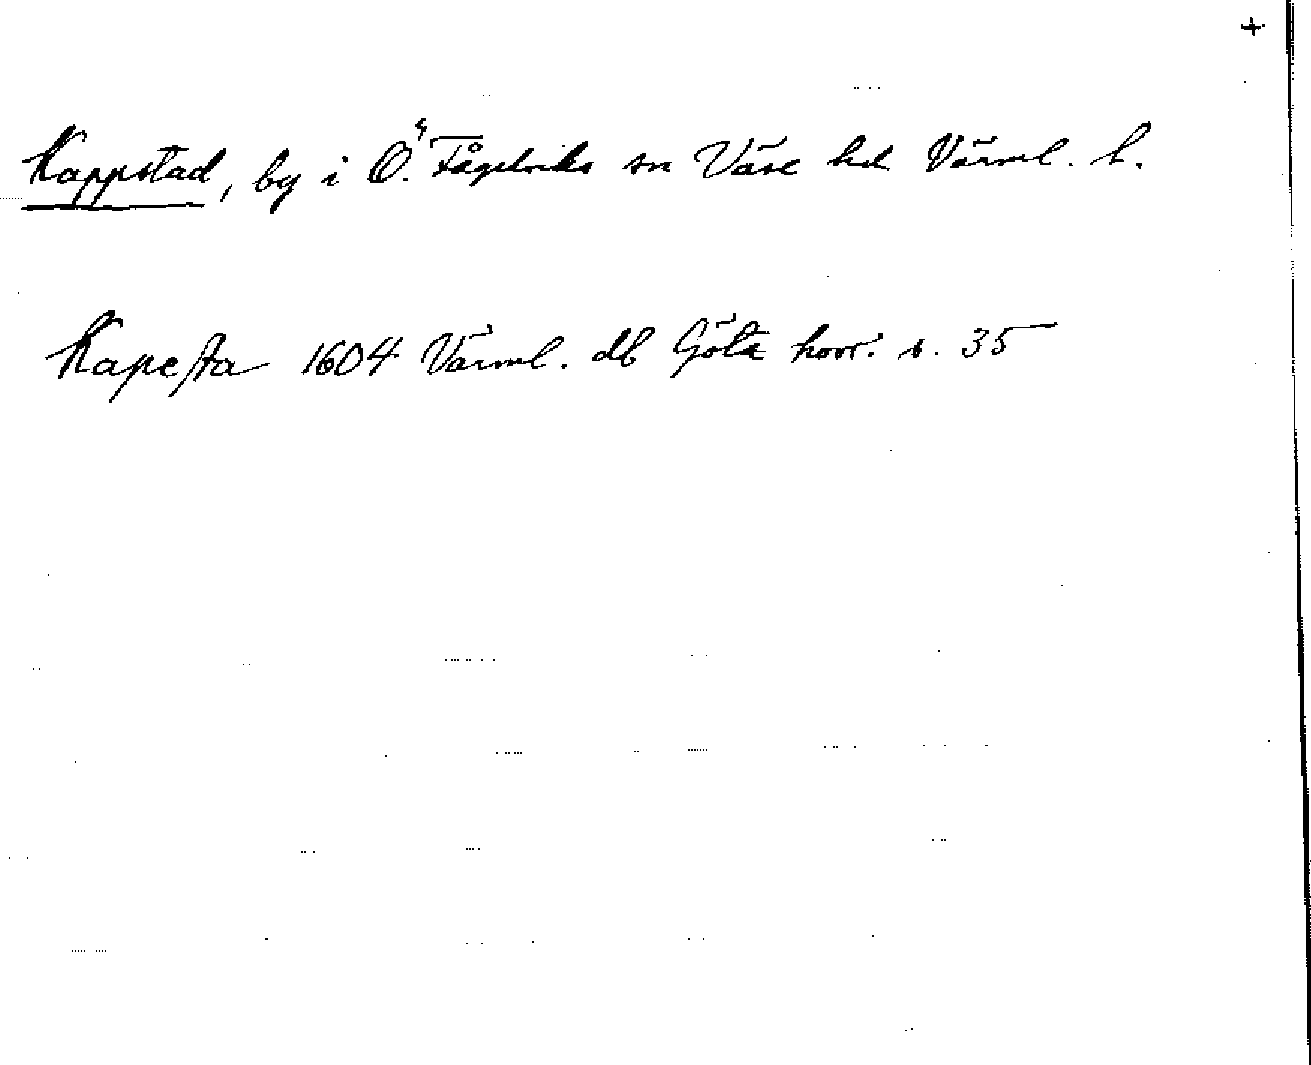 +
Kappstad, by i Ö. Fågelviks sn Väse hd Värml. l.
Kapesta 1604 Värml. db Göta hovr. s. 35